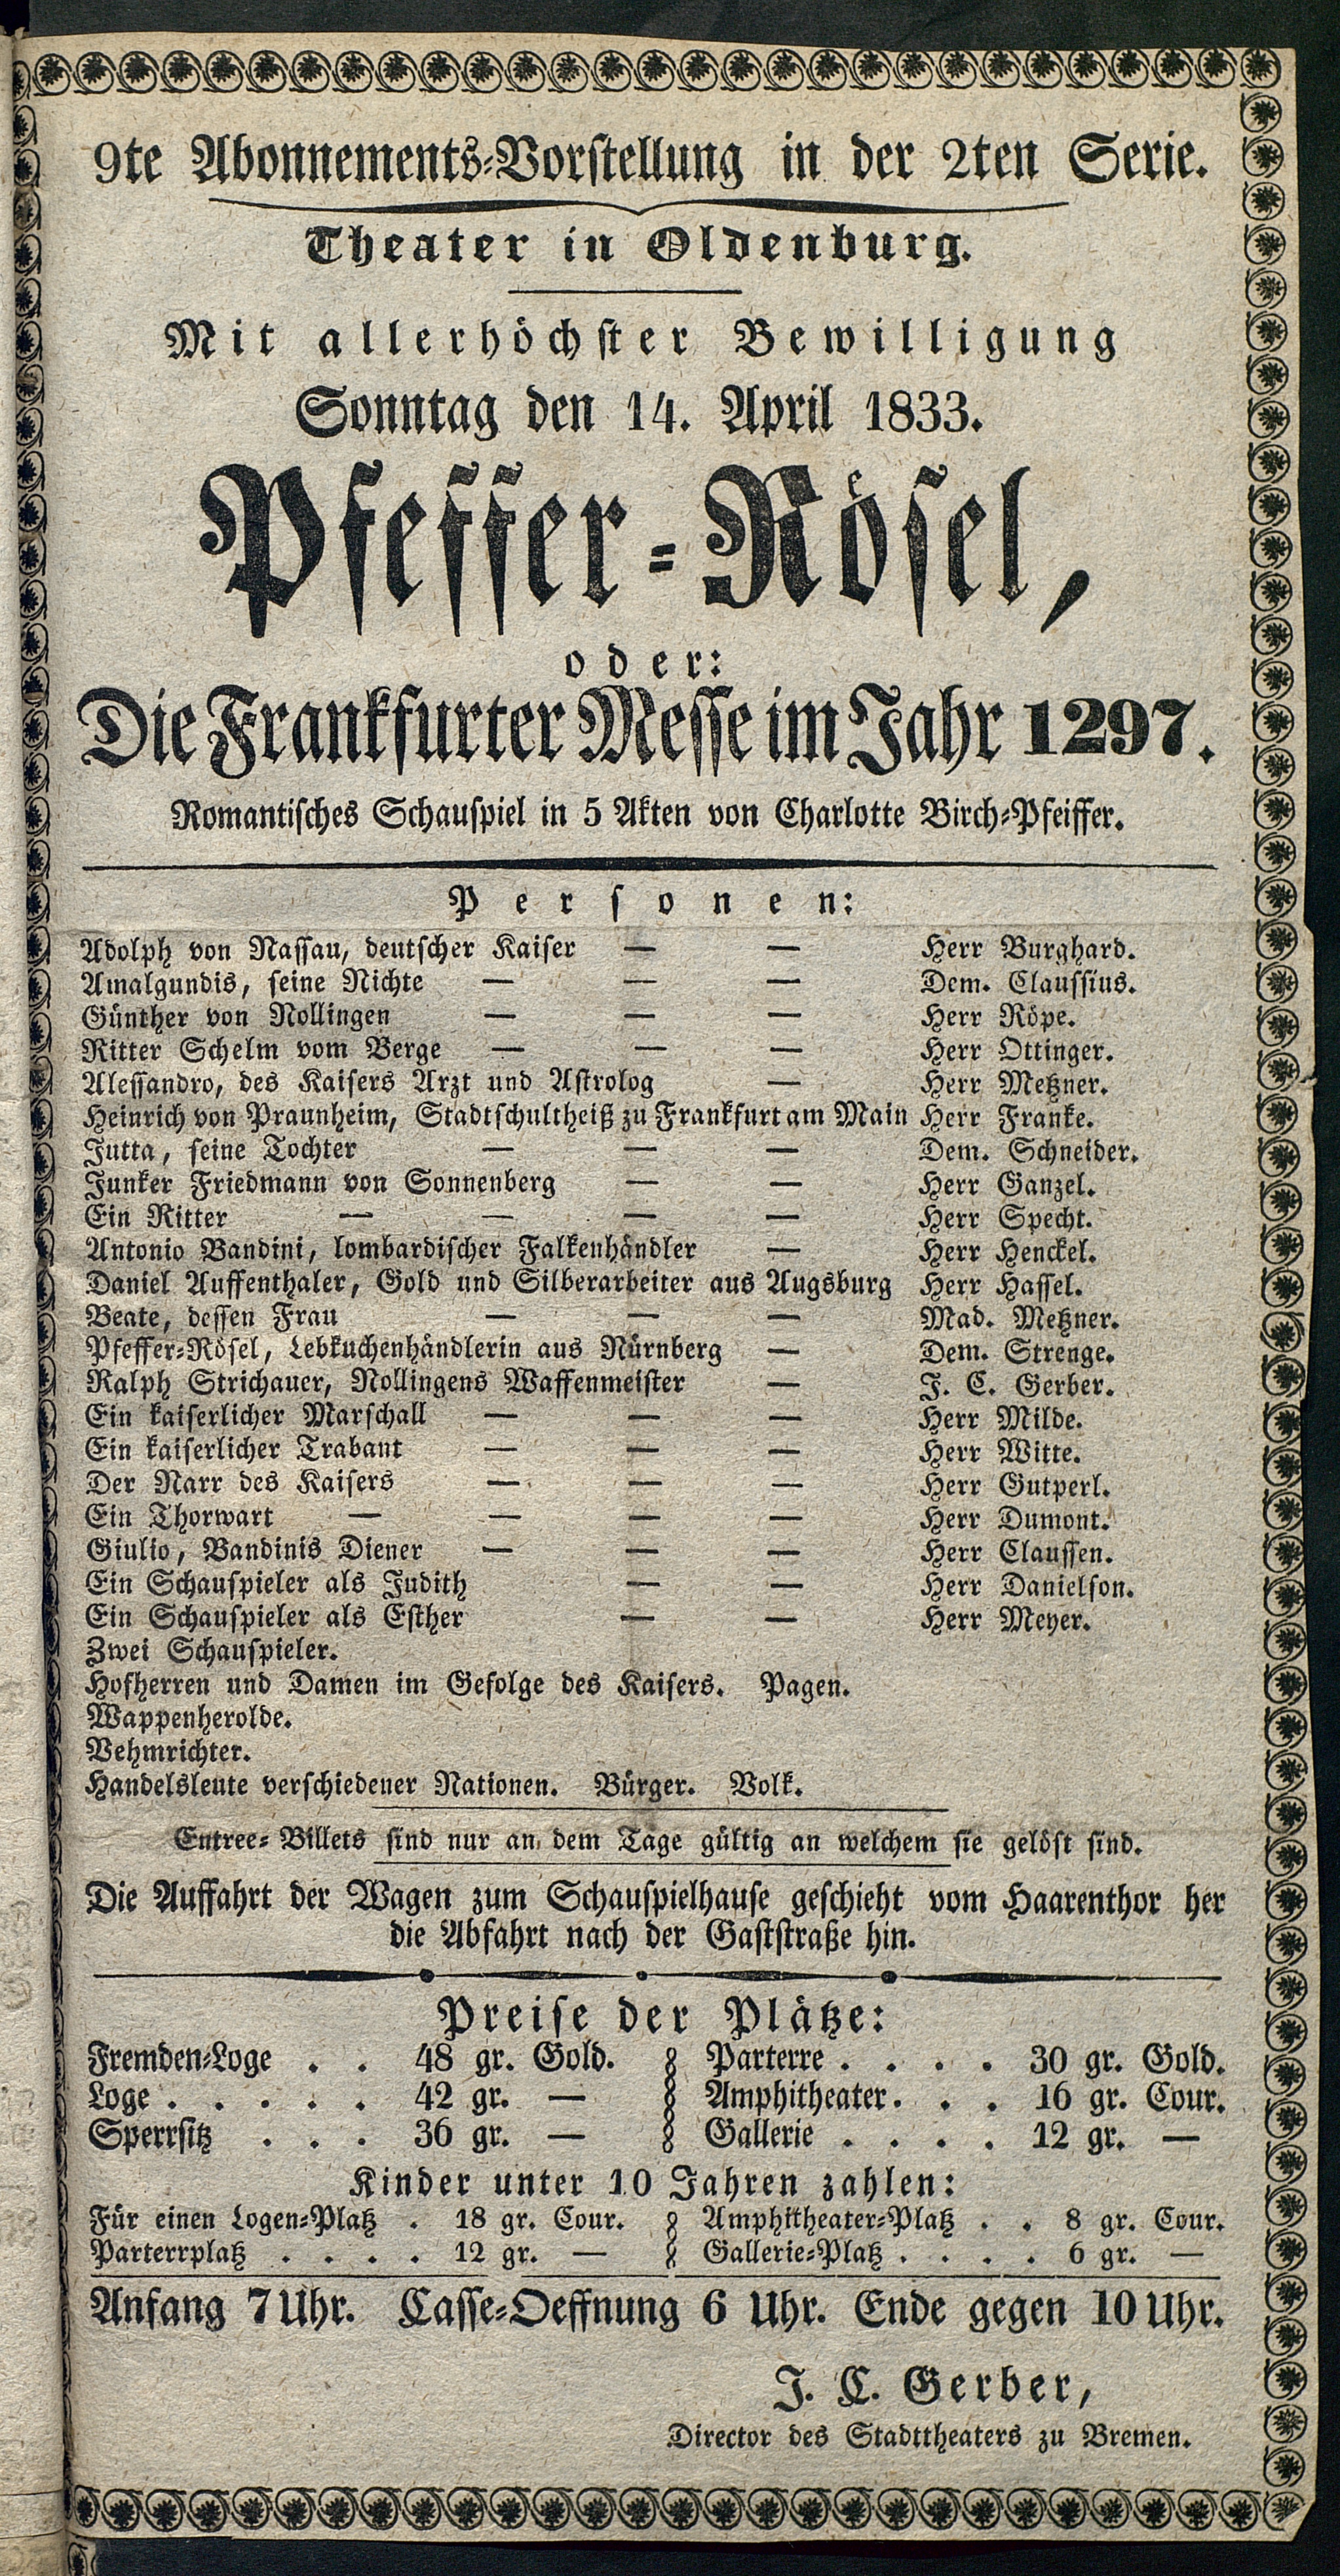 9te Abonnements-Vorstellung in der 2ten Serie.
Theater in Oldenburg.
Mit allerhöchster Bewilligung
Sonntag den 14. April 1833.
Pfeffer-Rösel,
oder:
Die Frankfurter Messe im Jahr 1297.
Romantisches Schauspiel in 5 Akten von Charlotte Birch-Pfeiffer.
Personen:
Adolph von Nassau, deutscher Kaiser — — Herr Burghard.
Amalgundis, seine Nichte — — — Dem. Claussius.
Günther von Nollingen — — — Herr Röpe.
Ritter Schelm vom Berge — — — Herr Ottinger.
Alessandro, des Kaisers Arzt und Astrolog — Herr Metzner.
Heinrich von Praunheim, Stadtschultheiß zu Frankfurt am Main Herr Franke.
Jutta, seine Tochter — — — Dem. Schneider.
Junker Friedmann von Sonnenberg — — Herr Ganzel.
Ein Ritter — — — — Herr Specht.
Antonio Bandini, lombardischer Falkenhändler — Herr Henckel.
Daniel Auffenthaler, Gold und Silberarbeiter aus Augsburg Herr Hassel.
Beate, dessen Frau — — — Mad. Metzner.
Pfeffer-Rösel, Lebkuchenhändlerin aus Nürnberg — Dem. Strenge.
Ralph Strichauer, Nollingens Waffenmeister — J. C. Gerber.
Ein kaiserlicher Marschall — — — Herr Milde.
Ein kaiserlicher Trabant — — — Herr Witte.
Der Narr des Kaisers — — — Herr Gutperl.
Ein Thorwart — — — — Herr Dumont.
Giulio, Bandinis Diener — — — Herr Claussen.
Ein Schauspieler als Judith — — Herr Danielson.
Ein Schauspieler als Esther — — Herr Meyer.
Zwei Schauspieler.
Hofherren und Damen im Gefolge des Kaisers. Pagen.
Wappenherolde.
Vehmrichter.
Handelsleute verschiedener Nationen. Bürger. Volk.
Entree-Billets sind nur an dem Tage gültig an welchem sie gelöst sind.
Die Auffahrt der Wagen zum Schauspielhause geschieht vom Haarenthor her
die Abfahrt nach der Gaststraße hin.
Preise der Plätze:
Fremden-Loge . . 48 gr. Gold. Parterre . . . . 30 gr. Gold.
Loge . . . . . 42 gr. — Amphitheater . . . 16 gr. Cour.
Sperrsitz . . . 36 gr. — Gallerie . . . . 12 gr. —
Kinder unter 10 Jahren zahlen:
Für einen Logen-Platz . 18 gr. Cour. Amphitheater-Platz . . 8 gr. Cour.
Parterrplatz . . . . 12 gr. — Gallerie-Platz . . . . 6 gr. —
Anfang 7 Uhr. Casse-Oeffnung 6 Uhr. Ende gegen 10 Uhr.
J. C. Gerber,
Director des Stadttheaters zu Bremen.